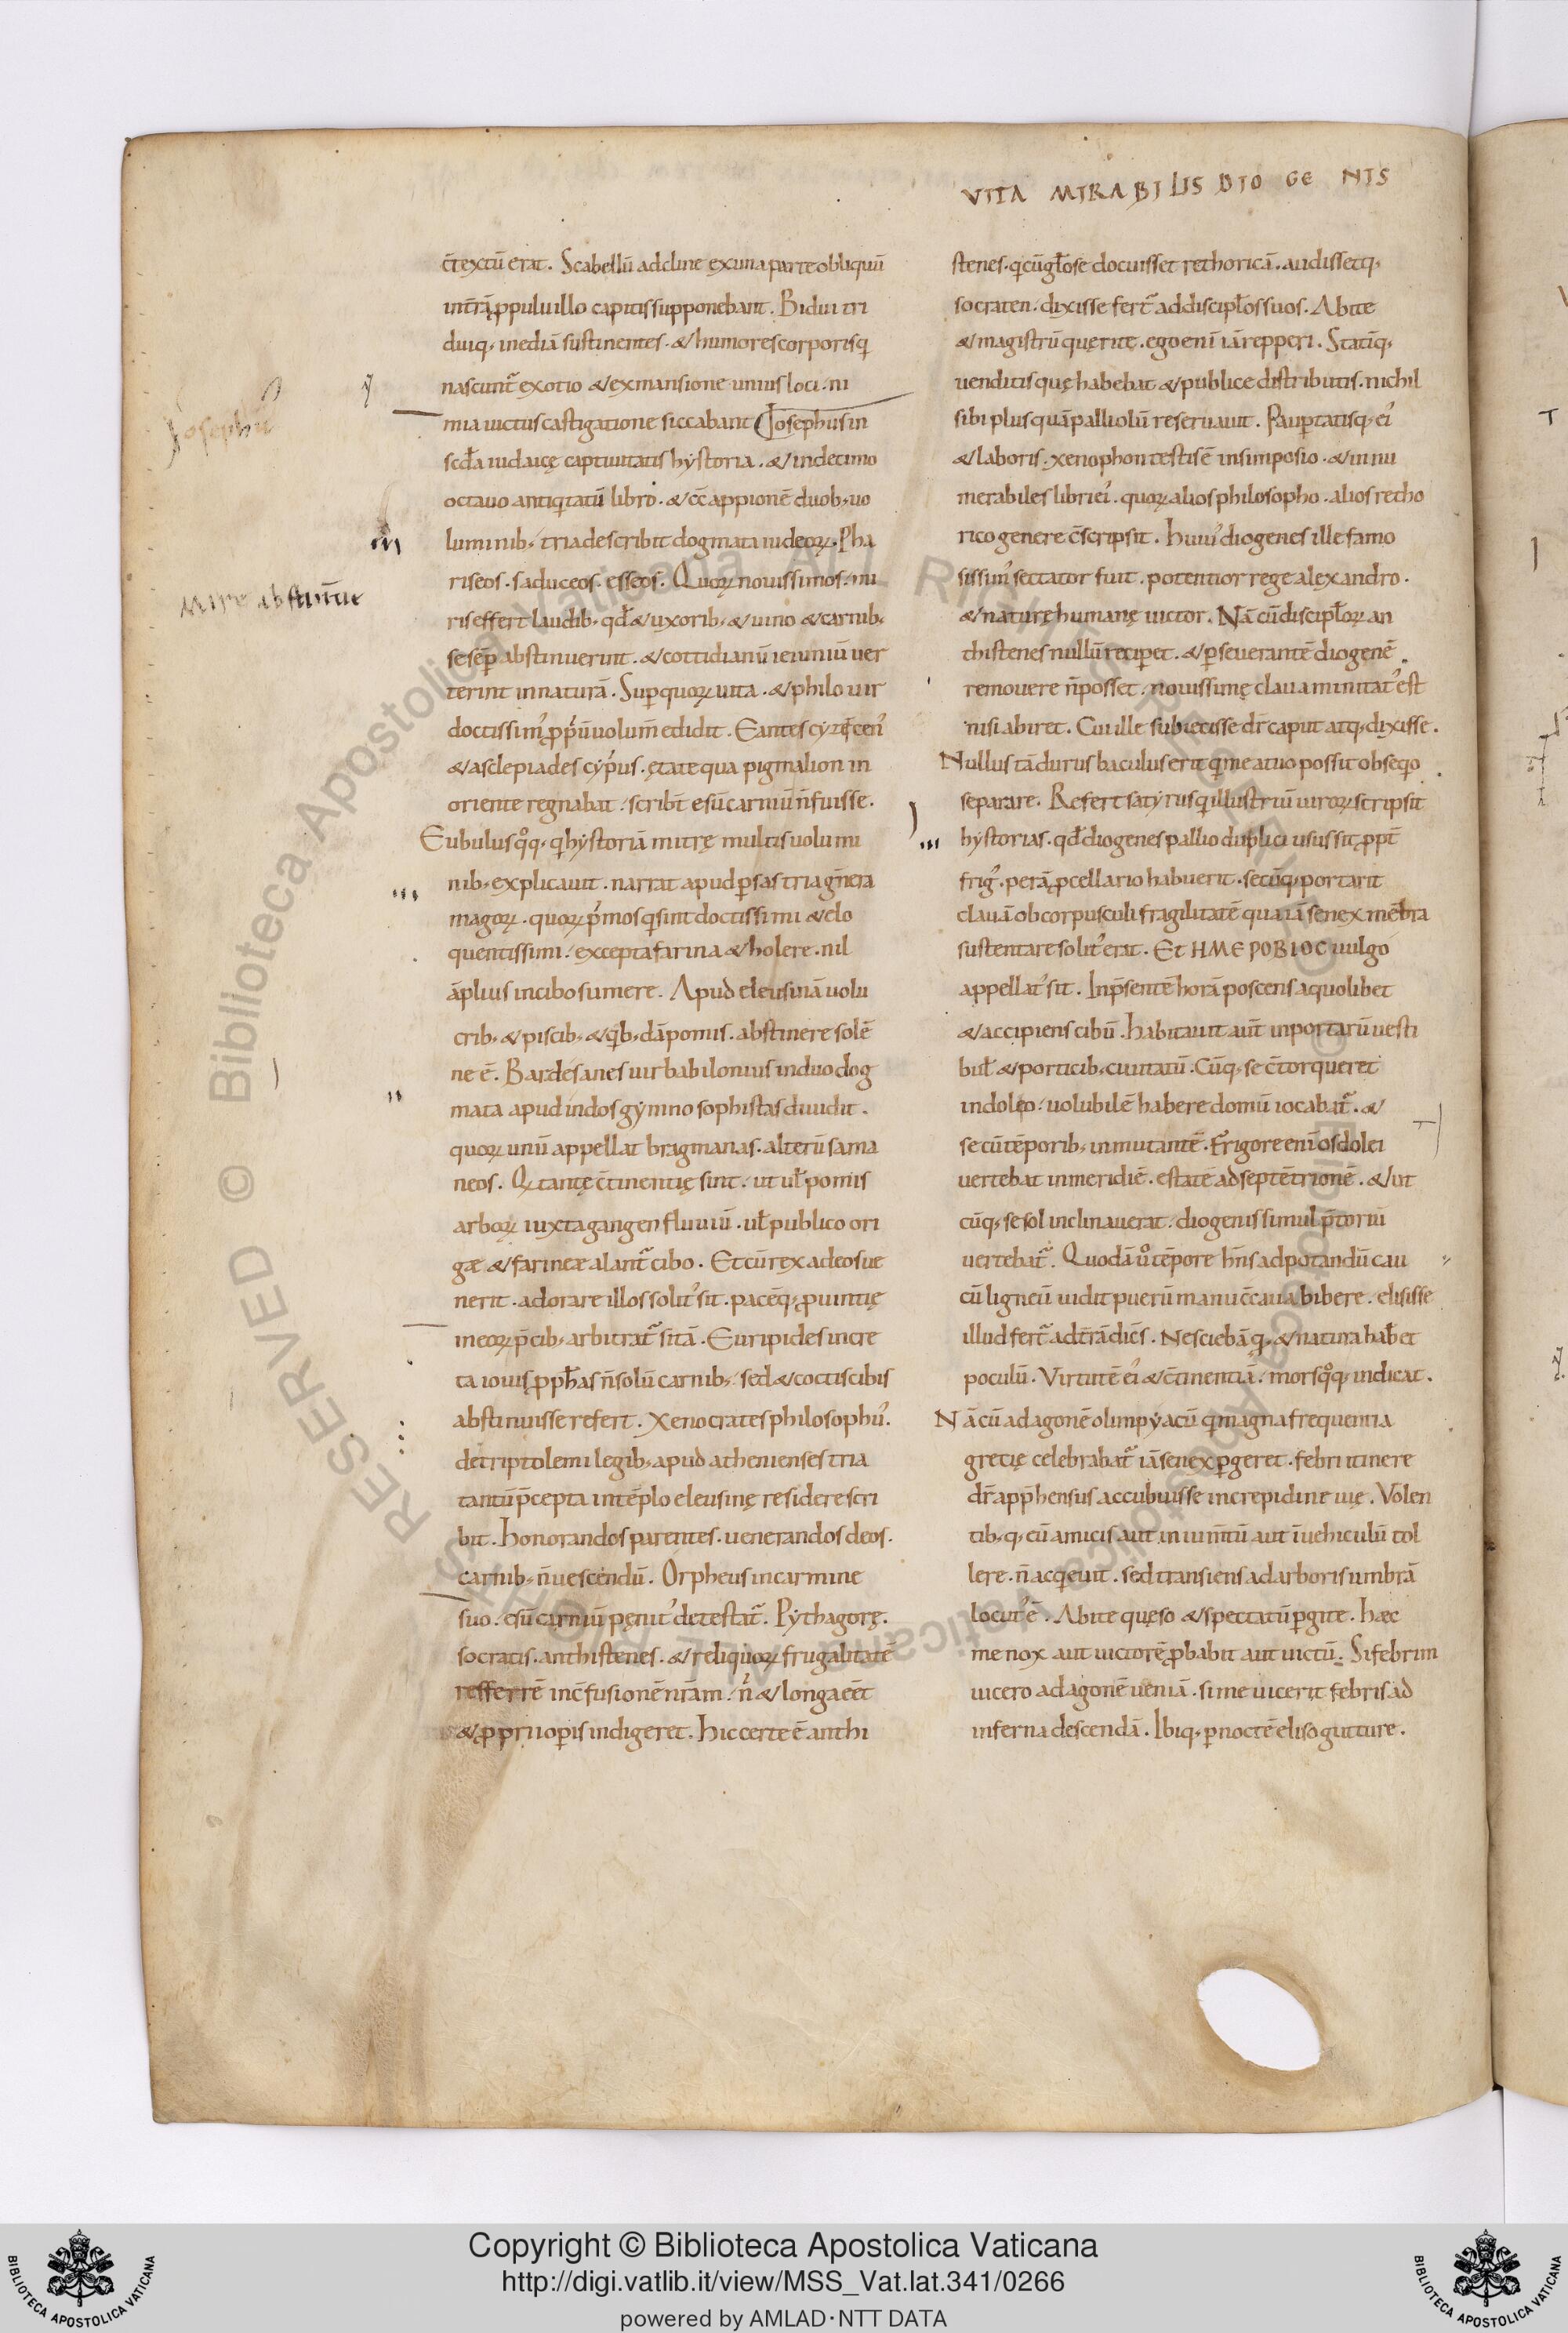 VITA MIRABILIS DIO GE NIS
c̄textū erat. Scabellū adcline ex una parte obliquū
int̄rā ꝓ puluillo capitis supponebant. Bidui tri
duiq; inediā sustinentes. & humores corporis q̇
nascunt᷒ ex otio & ex mansione unius loci. ni
mia uictus castigatione siccabant Iosephus in
Josephꝰ
sc̄da iudaicę captiuitatis hystoria. & in decimo
octauo antiq̇tatū libro. & cc̄ appionē duob; uo
luminib; tria describit dogmata iudeoꝝ. Pha
riseos. saduceos. esseos. Quoꝝ nouissimos. mi
mire abstinētie
ris effert laudib; qd̄ & uxorib; & uino & carnib;
se sēp abstinuerint. & cottidianū ieiuniū uer
terint in naturā. Sup quoꝝ uita. & philo uir
doctissimꝰ ꝓpriū uolum̄ edidit. Eantes cyzicenꝰ
& asclepiades cyprus. ętate qua pigmalion in
oriente regnabat. scribt̄ esū carniū n̄ fuisse.
Eubulus q̊q; q̇ hystoriā mitrę multis uolumi
nib; explicauit. narrat apud ꝑsas tria gn̄era
magoꝝ. quoꝝ p̄mos q̇ sint doctissimi & elo
quentissimi. excepta farina & holere. nil
āplius in cibo sumere. Apud eleusinā uolu
crib; & piscib; & q̇b;dā pomis. abstinere solē
ne ē. Bardesanes uir babilonius in duo dog
mata apud indos gymnosophistas diuidit.
quoꝝ unū appellat bragmanas. alterū sama
neos. Q̇ tantę c̄tinentię sint. ut ut̄ pomis
arboꝝ iuxta gangen fluuiū. ut̄ publico ori
gæ & farineæ alant᷒ cibo. Et cū rex ad eos ue
nerit. adorare illos solitꝰ sit. pacēq; ꝓuintię
in eoꝝ p̄cib; arbitrat᷒ sitā. Euripides in cre
ta iouis ꝓph̄as n̄ solū carnib; sed & coctis cibis
abstinuisse refert. Xenocrates philosophꝰ.
de triptolemi legib; apud athenienses tria
tantū p̄cepta in tēplo eleusinę residere scri
bit. Honorandos parentes. uenerandos deos.
carnib; n̄ uescendū. Orpheus in carmine
suo. esū carniū pęnitꝰ detestat᷒. Pythagorę.
socratis. anthistenes. & reliquoꝝ frugalitatē
refferrē in c̄fusionē nr̄am. n̄ & longa eēt
& ꝓprii oꝑis indigeret. Hic certe ē anthi
stenes. q̇ cū gl̄ose docuisset rethoricā. audissetq;
socraten. dixisse fert᷒ ad discipl̄os suos. Abite
& magistrū querite. ego enī iā repperi. Statīq;
uenditis quę habebat & publice distributis. nichil
sibi plus quā palliolū reseruauit. Paupertatisq; eiꝰ
& laboris. xenophon testis ē in simposio. & innu
merabiles libri eiꝰ. quoꝝ alios philosopho. alios retho
rico genere c̄scripsit. Huiꝰ diogenes ille famo
sissimꝰ sectator fuit. potentior rege alexandro.
& naturę humanę uictor. Nā cū discipl̄oꝝ an
thistenes nullū reciꝑet. & ꝑseuerantē diogenē
remouere n̄ posset. nouissimę claua minitatꝰ est
nisi abiret. Cui ille subiecisse dr̄ caput atq; dixisse.
Nullus tā durus baculus erit q̇ me a tuo possit obseq̇o
separare. Refert satyrus q̇ illustriū uiroꝝ scripsit
hystorias. qd̄ diogenes pallio duplici usus sit ꝓpt̄
frigꝰ. perā ꝓ cellario habuerit. secūq; portarit
clauā ob corpusculi fragilitatē qua iā senex mēbra
sustentare solitꝰ erat. Et HMEPOBIOC uulgo
appellatꝰ sit. In p̄sentē horā poscens a quolibet
& accipiens cibū. Habitauit aut̄ in portarū uesti
bul̄ & porticib; ciuitatū. Cūq; se c̄torqueret
in doleo. uolubilē habere domū iocabat᷒. &
se cū tēporib; inmutantē. Frigore enī os dolei
uertebat in meridiē. estatē ad septētrionē. & ut
cūq; se sol inclinauerat. diogenis simul p̄toriū
uertebat᷒. Quodā ů tēpore hn̄s ad potandū cau
cū ligneū uidit puerū manu c̄caua bibere. elisisse
illud fert᷒ ad t̄rā dicēs. Nesciebā q; & natura hab̄et
poculū. Virtutē eiꝰ & c̄tinentiā. mors q̊q; indicat.
Nā cū ad agonē olimpyacū q̇ magna frequentia
gretię celebrabat᷒ iā senex ꝑgeret. febri itinere
dr̄ app̄hensus accubuisse in crepidine uię. Volen
tib;q; cū amicis aut in ium̄tū aut ī uehiculū tol
lere. n̄ acq̇euit. sed transiens ad arboris umbrā
locutꝰ ē. Abite quęso & spectatū ꝑgite. Hæc
me nox aut uictorē ꝓbabit aut uictū. Si febrim
uicero ad agonē ueniā. si me uicerit febris ad
inferna descendā. Ibiq; ꝑ noctē eliso gutture.
Copyright © Biblioteca Apostolica Vaticana
http://digi.vatlib.it/view/MSS_Vat.lat.341/0266
powered by AMLAD·NTT DATA